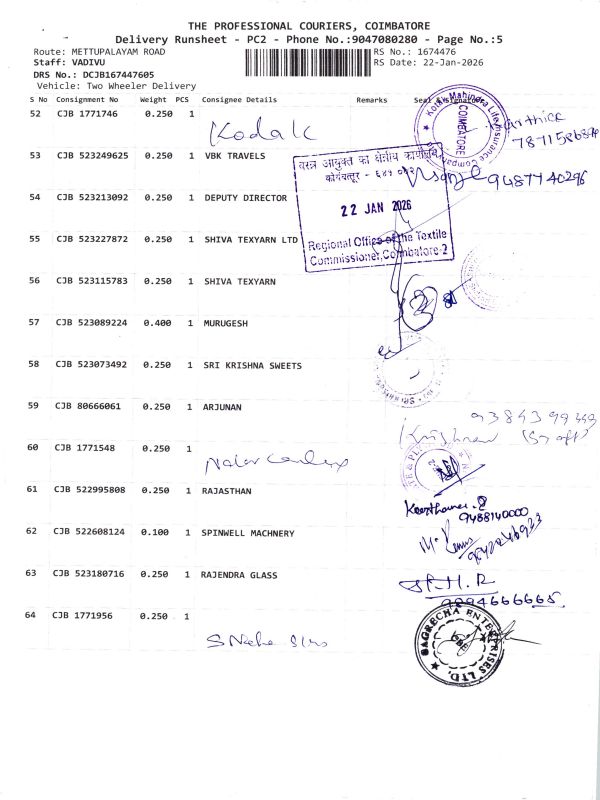 THE PROFESSIONAL COURIERS, COIMBATORE
Delivery Runsheet - PC2 - Phone No.:9047080280 - Page No.:5
Route: METTUPALAYAM ROAD RS No.: 1674476
Staff: VADIVU RS Date: 22-Jan-2026
DRS No.: DCJB167447605
Vehicle: Two Wheeler Delivery
S No Consignment No Weight PCS Consignee Details Remarks Seal & Signature
52 CJB 1771746 0.250 1
Kodak
7871586396
53 CJB 523249625 0.250 1 VBK TRAVELS
9487740296
54 CJB 523213092 0.250 1 DEPUTY DIRECTOR
वस्त्र आयुक्त का क्षेत्रीय कार्यालय
कोयंबत्तूर -
22 JAN 2026
Regional Office of the Textile
Commissioner, Coimbatore-2
55 CJB 523227872 0.250 1 SHIVA TEXYARN LTD
56 CJB 523115783 0.250 1 SHIVA TEXYARN
57 CJB 523089224 0.400 1 MURUGESH
58 CJB 523073492 0.250 1 SRI KRISHNA SWEETS
59 CJB 80666061 0.250 1 ARJUNAN
Krishnan (Staff)
60 CJB 1771548 0.250 1
61 CJB 522995808 0.250 1 RAJASTHAN
9488140000
62 CJB 522608124 0.100 1 SPINWELL MACHNERY
63 CJB 523180716 0.250 1 RAJENDRA GLASS
9994666665
64 CJB 1771956 0.250 1
SAGRECHA ENTERPRISES LTD.
Kotak Mahindra Life Insurance Company
COIMBATORE